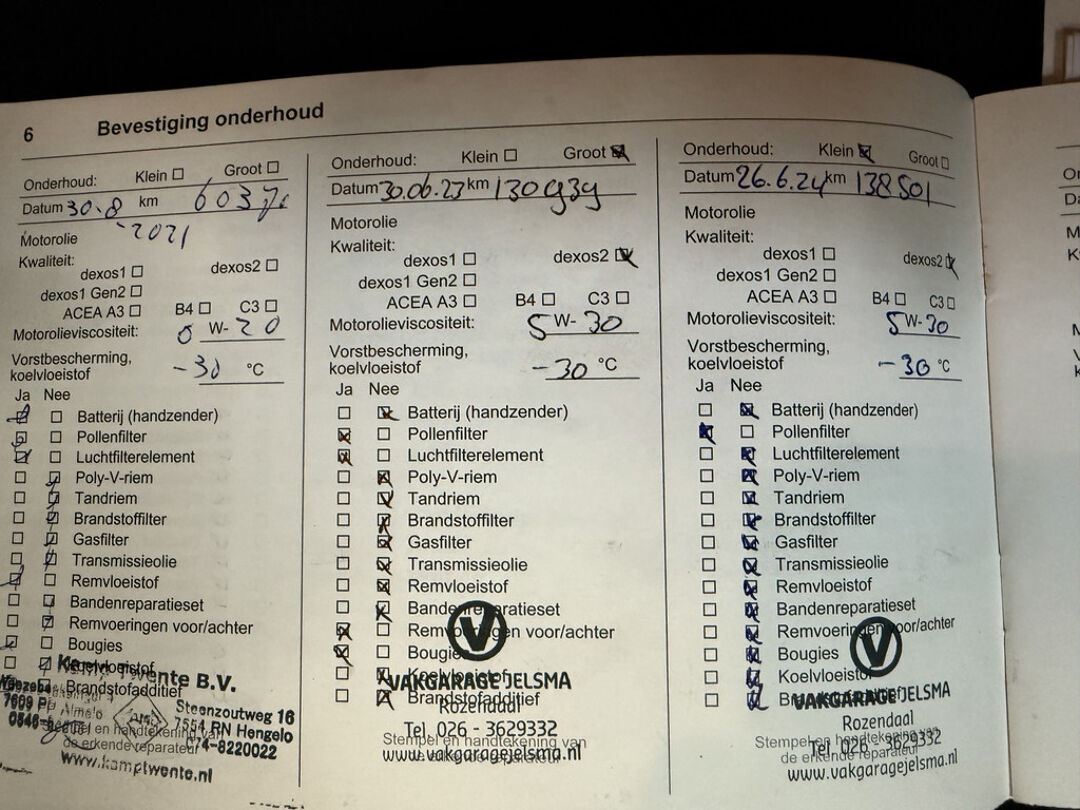 6 Bevestiging onderhoud
Onderhoud: Klein ☐ Groot ☐
Datum 30.8 km 6037
2021
Motorolie
Kwaliteit:
dexos1 ☐ dexos2 ☐
dexos1 Gen2 ☐
ACEA A3 ☐ B4 ☐ C3 ☐
Motorolieviscositeit: 0 W- 20
Vorstbescherming,
koelvloeistof -30 °C
Ja Nee
☒ ☐ Batterij (handzender)
☒ ☐ Pollenfilter
☒ ☐ Luchtfilterelement
☐ ☒ Poly-V-riem
☐ ☒ Tandriem
☐ ☒ Brandstoffilter
☐ ☒ Gasfilter
☐ ☒ Transmissieolie
☒ ☐ Remvloeistof
☐ ☒ Bandenreparatieset
☐ ☒ Remvoeringen voor/achter
☒ ☐ Bougies
☐ ☒ Koelvloeistof
Brandstofadditief
Twente B.V.
Steenzoutweg 16
7554 RN Hengelo
074-8220022
7609 PP Almelo
Stempel en handtekening van
de erkende reparateur
www.kamptwente.nl
Onderhoud: Klein ☐ Groot ☒
Datum 30.06.23 km 130939
Motorolie
Kwaliteit:
dexos1 ☐ dexos2 ☒
dexos1 Gen2 ☐
ACEA A3 ☐ B4 ☐ C3 ☐
Motorolieviscositeit: 5 W- 30
Vorstbescherming,
koelvloeistof -30 °C
Ja Nee
☐ ☒ Batterij (handzender)
☒ ☐ Pollenfilter
☒ ☐ Luchtfilterelement
☐ ☒ Poly-V-riem
☐ ☒ Tandriem
☐ ☒ Brandstoffilter
☐ ☒ Gasfilter
☐ ☒ Transmissieolie
☐ ☒ Remvloeistof
☐ ☒ Bandenreparatieset
☒ ☐ Remvoeringen voor/achter
☒ ☐ Bougies
☐ ☒ Koelvloeistof
☐ ☒ Brandstofadditief
V
VAKGARAGE JELSMA
Rozendaal
Tel. 026 - 3629332
Stempel en handtekening van
de erkende reparateur
www.vakgaragejelsma.nl
Onderhoud: Klein ☒ Groot ☐
Datum 26.6.24 km 138501
Motorolie
Kwaliteit:
dexos1 ☐ dexos2 ☒
dexos1 Gen2 ☐
ACEA A3 ☐ B4 ☐ C3 ☐
Motorolieviscositeit: 5 W- 30
Vorstbescherming,
koelvloeistof -30 °C
Ja Nee
☐ ☒ Batterij (handzender)
☒ ☐ Pollenfilter
☐ ☒ Luchtfilterelement
☐ ☒ Poly-V-riem
☐ ☒ Tandriem
☐ ☒ Brandstoffilter
☐ ☒ Gasfilter
☐ ☒ Transmissieolie
☐ ☒ Remvloeistof
☐ ☒ Bandenreparatieset
☐ ☒ Remvoeringen voor/achter
☐ ☒ Bougies
☐ ☒ Koelvloeistof
☐ ☒ Brandstofadditief
V
VAKGARAGE JELSMA
Rozendaal
Tel. 026 - 3629332
Stempel en handtekening van
de erkende reparateur
www.vakgaragejelsma.nl